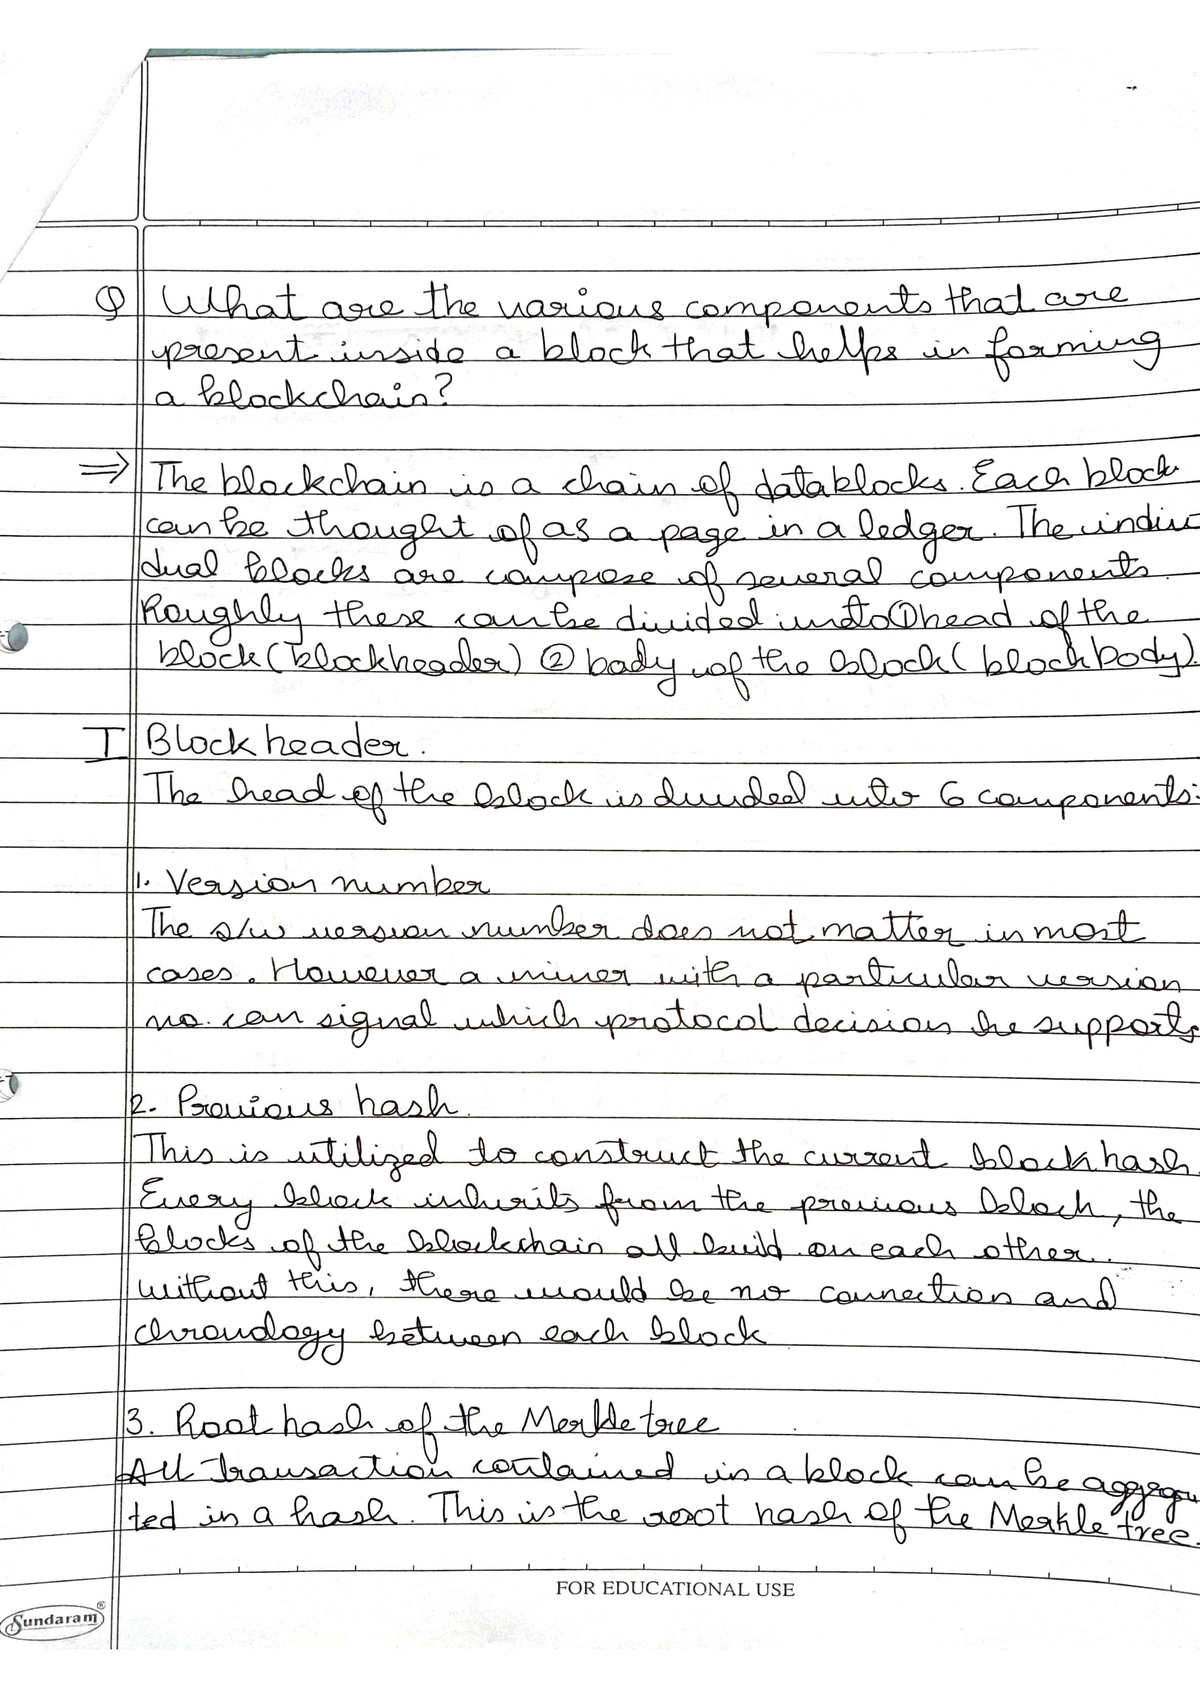 Q What are the various components that are
present inside a block that helps in forming
a blockchain?
⇒ The blockchain is a chain of datablocks. Each block
can be thought of as a page in a ledger. The indivi
dual blocks are compose of several components.
Roughly these can be divided into ① head of the
block (blockheader) ② body of the block (blockbody).
I Block header.
The head of the block is divided into 6 components:
1. Version number
The s/w version number does not matter in most
cases. However a miner with a particular version
no. can signal which protocol decision he supports
2. Previous hash.
This is utilized to construct the current block hash.
Every block inherits from the previous block, the
blocks of the blockchain all build on each other.
without this, there would be no connection and
chronology between each block
3. Root hash of the Merkle tree
All transaction contained in a block can be
ted in a hash. This is the root hash of the Merkle tree.
FOR EDUCATIONAL USE
Sundaram®